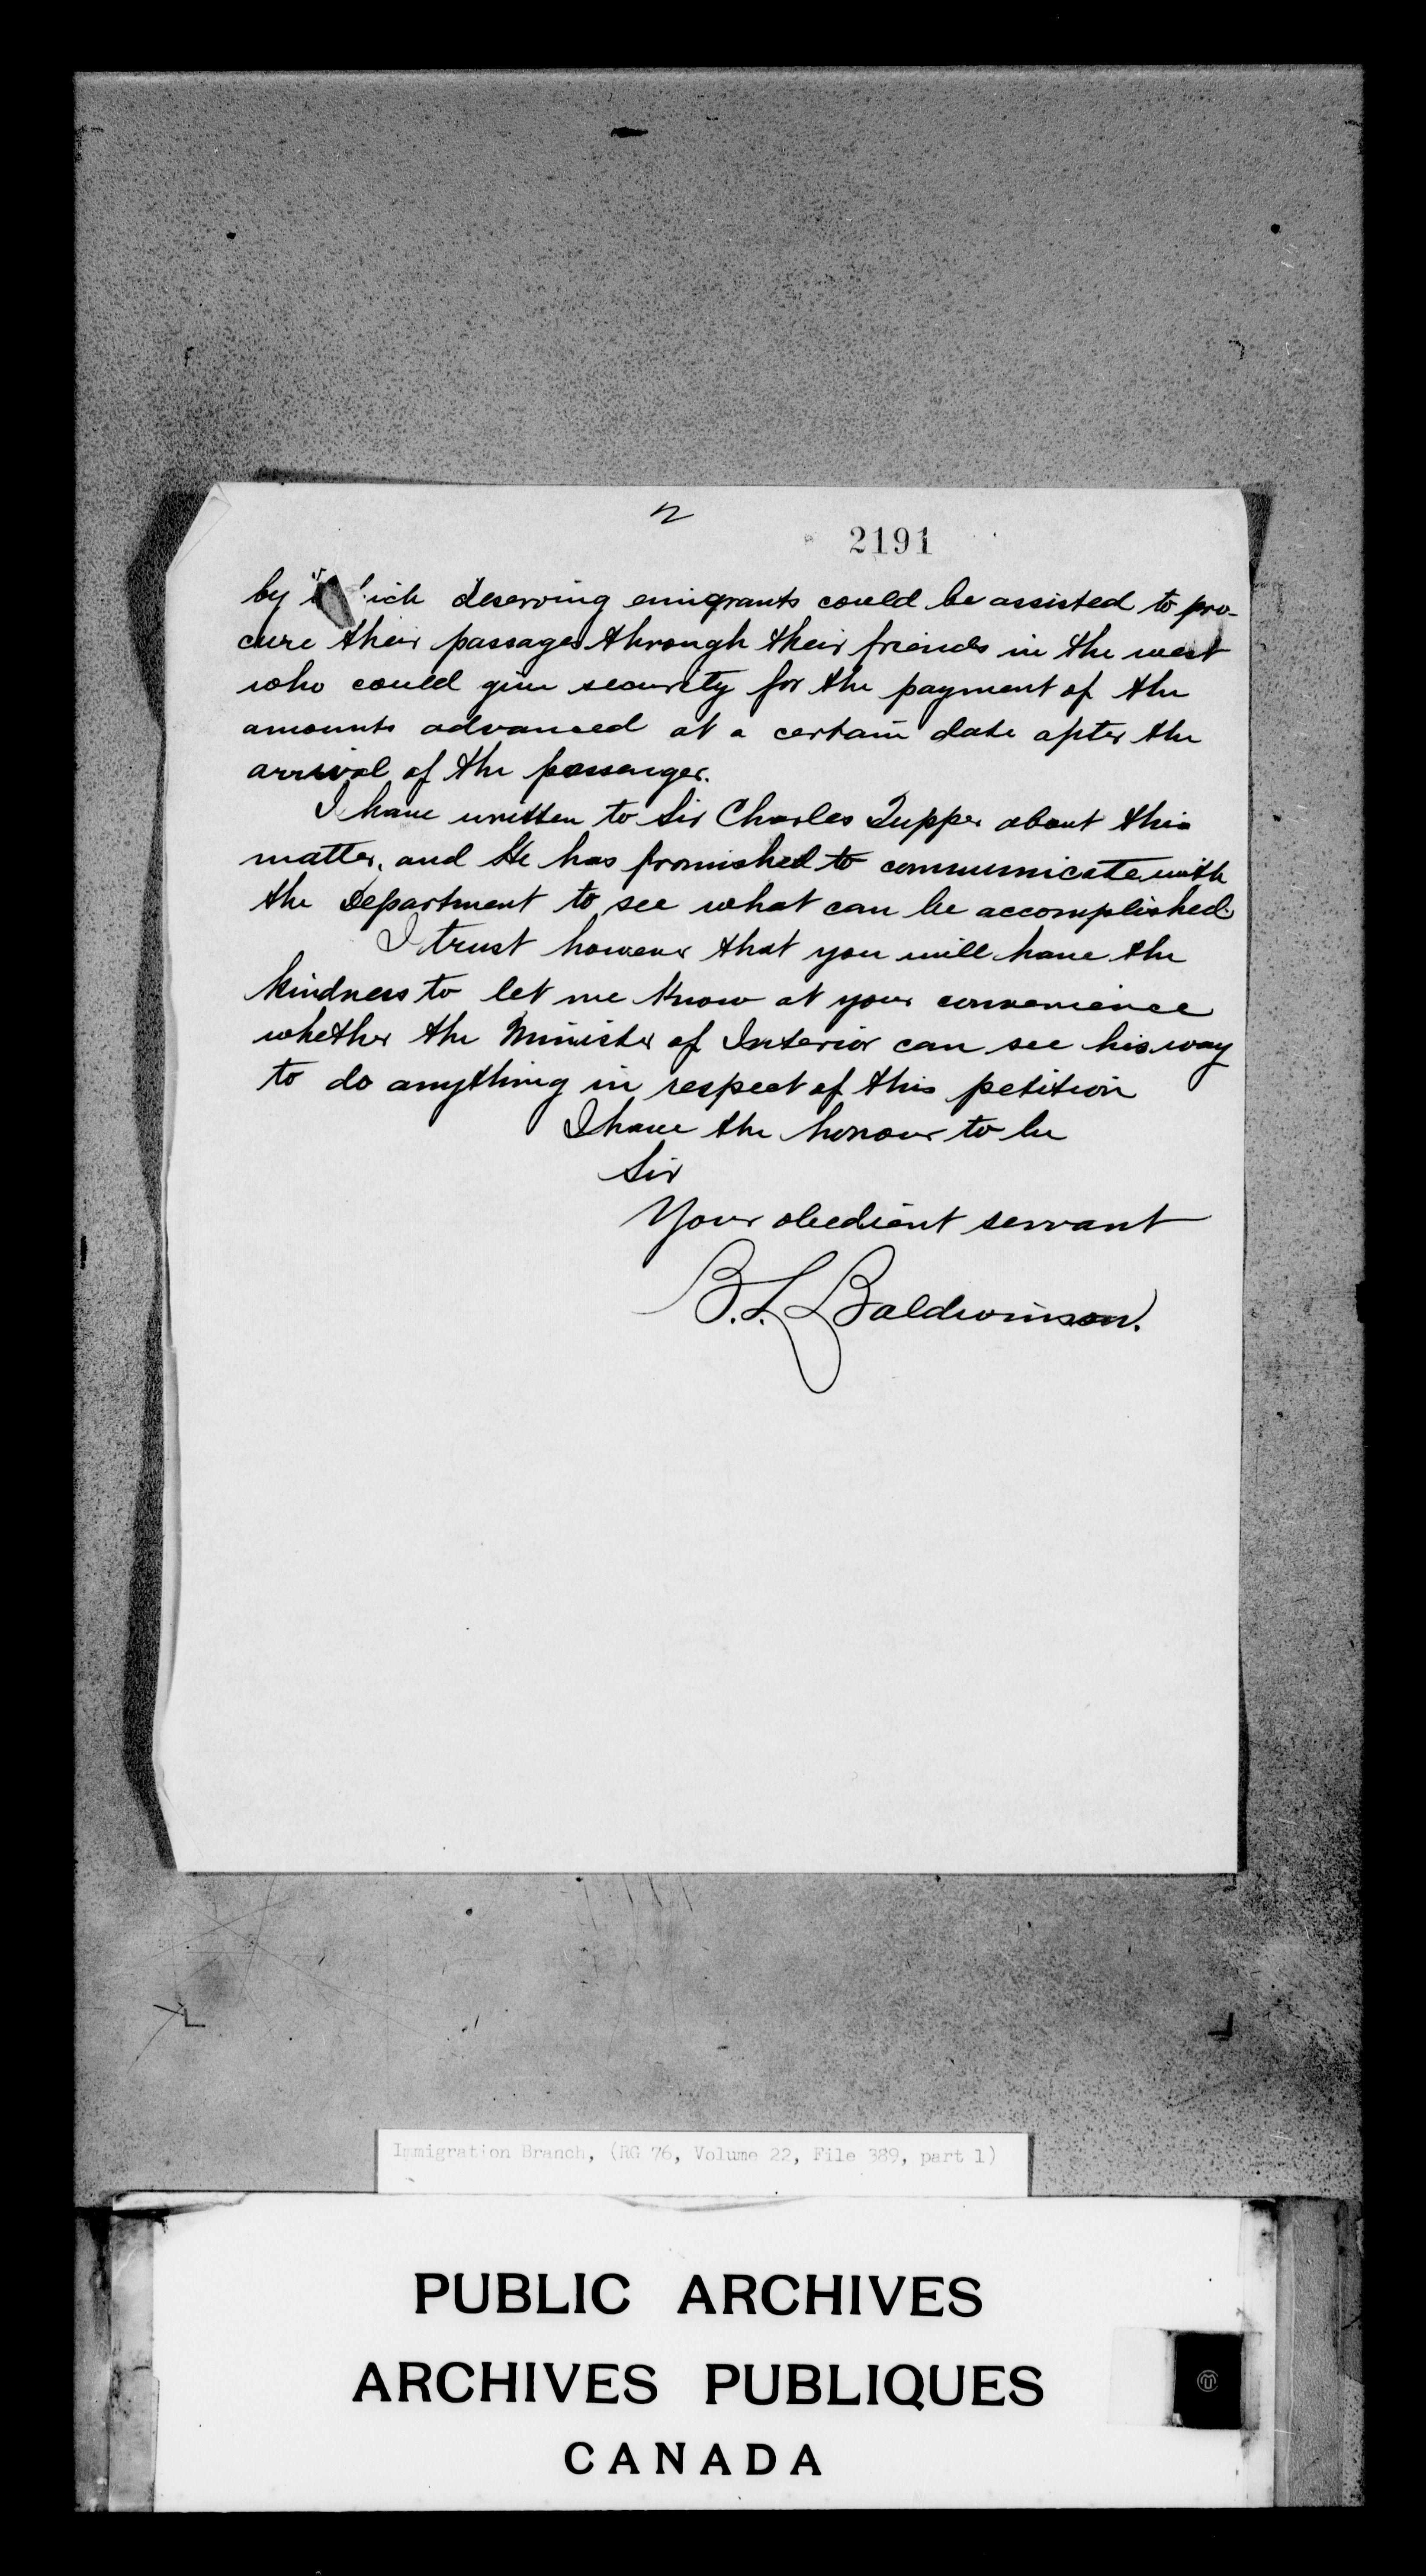 2
2191
by which deserving emigrants could be assisted to pro-
cure their passages through their friends in the west
who could give security for the payment of the
amounts advanced at a certain date after the
arrival of the passenger.
I have written to Sir Charles Tupper about this
matter, and He has promished to communicate with
the Department to see what can be accomplished.
I trust however that you will have the
kindness to let me know at your convenience
whether the Minister of Interior can see his way
to do anything in respect of this petition
I have the honour to be
Sir
Your obedient servant
B. L. Baldwinson.
Immigration Branch, (RG 76, Volume 22, File 389, part 1)
PUBLIC ARCHIVES
ARCHIVES PUBLIQUES
CANADA